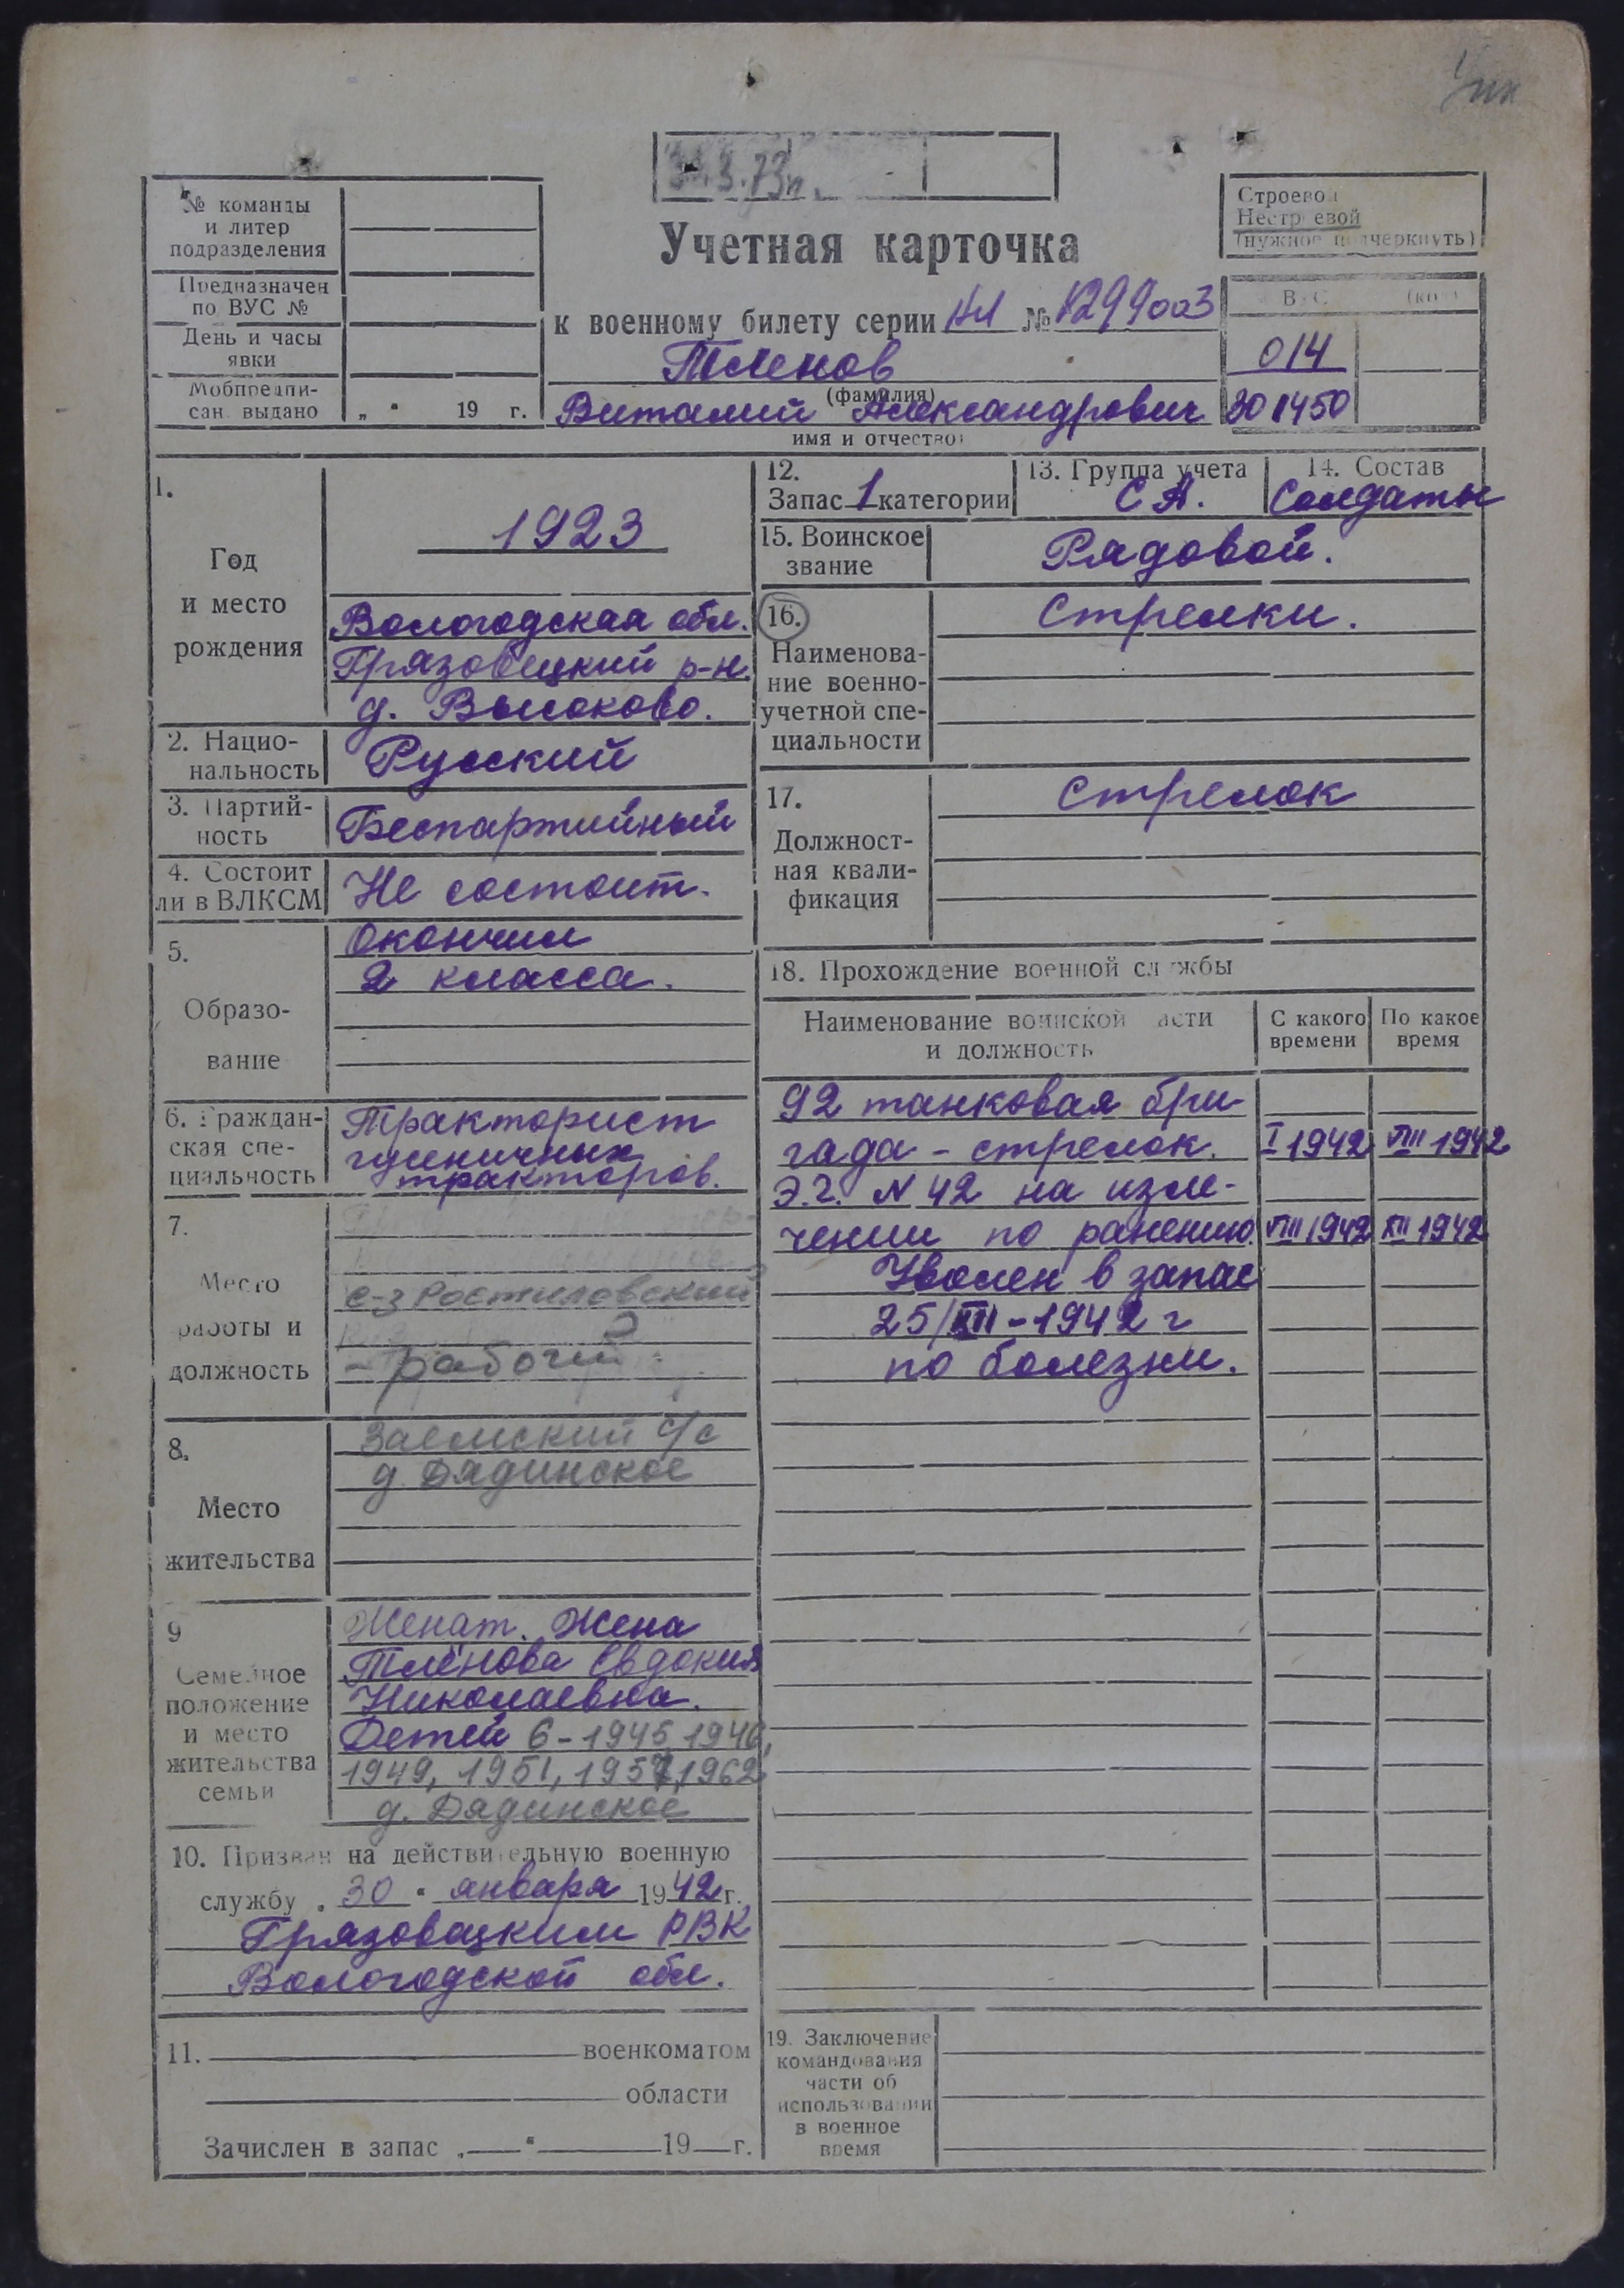 31.3.73г.
№ команды
и литер
подразделения
Предназначен
по ВУС №
День и часы
явки
Мобпредпи-
сан. выдано „ “ 19 г.
Учетная карточка
к военному билету серии НЛ № 1299003
Тленов
(фамилия)
Виталий Александрович
имя и отчество)
Строевой
Нестроевой
(нужное подчеркнуть)
ВУС (код)
014
301450
1.
Год
и место
рождения
1923
Вологодская обл.
Грязовецкий р-н.
д. Высоково.
2. Нацио-
нальность
Русский
3. Партий-
ность
Беспартийный
4. Состоит
ли в ВЛКСМ
Не состоит.
5.
Образо-
вание
Окончил
2 класса.
6. Граждан-
ская спе-
циальность
Тракторист
гусеничных
тракторов.
7.
Место
работы и
должность
с-з Ростиловский
– рабочий
8.
Место
жительства
Заемский с/с
д. Дядинское
9
Семейное
положение
и место
жительства
семьи
Женат. Жена
Тлёнова Евдокия
Николаевна.
Детей 6 – 1945, 1946,
1949, 1951, 1957, 1962
д. Дядинское
10. Призван на действительную военную
службу „ 30 “ января 1942 г.
Грязовацким РВК
Вологодской обл.
11. военкоматом
области
Зачислен в запас „ “ 19 г.
12.
Запас 1 категории
13. Группа учета
С А.
14. Состав
Солдаты
15. Воинское
звание
Рядовой.
16.
Наименова-
ние военно-
учетной спе-
циальности
Стрелки.
17.
Должност-
ная квали-
фикация
Стрелок
18. Прохождение военной службы
Наименование воинской части
и должность
С какого
времени
По какое
время
92 танковая бри
гада – стрелок. I 1942 VIII 1942
Э.Г. N 42 на изле-
чении по ранению. VIII 1942 XII 1942
Уволен в запас
25/XII – 1942 г
по болезни.
19. Заключение
командования
части об
использовании
в военное
время